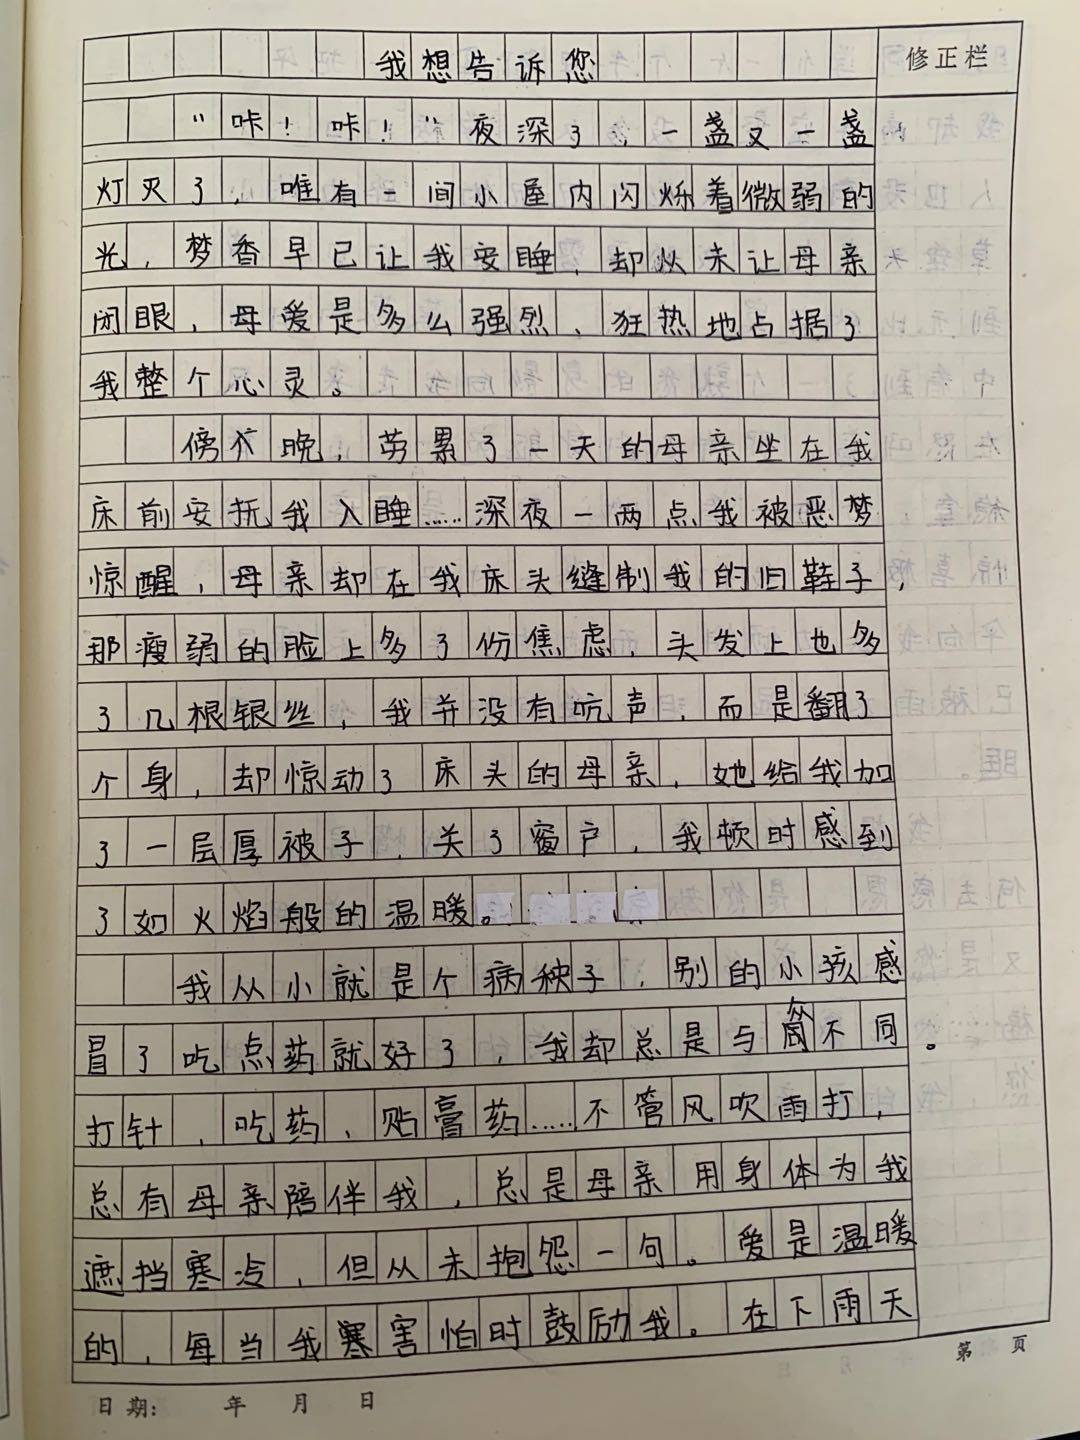 我想告诉您
修正栏
“咔！咔！”夜深了，一盏又一盏
灯灭了，唯有一间小屋内闪烁着微弱的
光，梦香早已让我安睡，却从未让母亲
闭眼，母爱是多么强烈，狂热地占据了
我整个心灵。
傍晚，劳累了一天的母亲坐在我
床前安抚我入睡……深夜一两点我被恶梦
惊醒，母亲却在我床头缝制我的旧鞋子，
那瘦弱的脸上多了份焦虑，头发上也多
了几根银丝，我并没有吭声，而是翻了
个身，却惊动了床头的母亲，她给我加
了一层厚被子，关了窗户，我顿时感到
了如火焰般的温暖。
我从小就是个病秧子，别的小孩感
冒了吃点药就好了，我却总是与众不同。
打针，吃药，贴膏药……不管风吹雨打，
总有母亲陪伴我，总是母亲用身体为我
遮挡寒冷，但从未抱怨一句。爱是温暖
的，每当我寒害怕时鼓励我。在下雨天
第 页
日期： 年 月 日